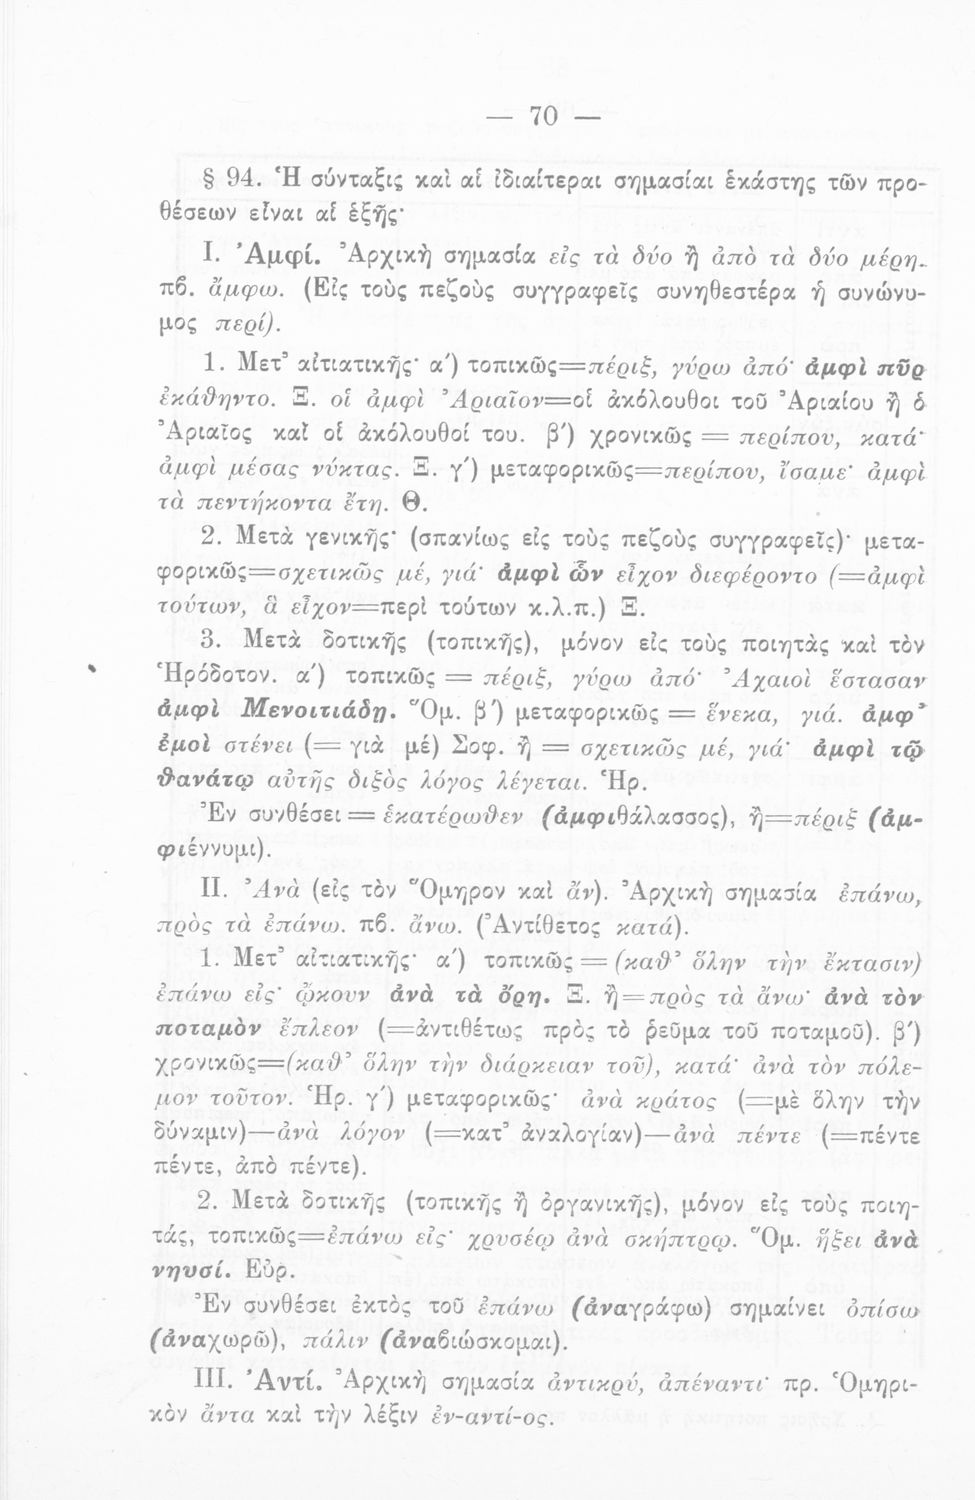 — 70 —
§ 94. Ἡ σύνταξις καὶ αἱ ἰδιαίτεραι σημασίαι ἑκάστης τῶν προ-
θέσεων εἶναι αἱ ἑξῆς·
I. Ἀμφί. Ἀρχικὴ σημασία εἰς τὰ δύο ἢ ἀπὸ τὰ δύο μέρη.
πβ. ἄμφω. (Εἰς τοὺς πεζοὺς συγγραφεῖς συνηθεστέρα ἡ συνώνυ-
μος περί).
1. Μετ’ αἰτιατικῆς· α′) τοπικῶς=πέριξ, γύρω ἀπό· ἀμφὶ πῦρ
ἐκάθηντο. Ξ. οἱ ἀμφὶ Ἀριαῖον=οἱ ἀκόλουθοι τοῦ Ἀριαίου ἢ ὁ
Ἀριαῖος καὶ οἱ ἀκόλουθοί του. β′) χρονικῶς = περίπου, κατά·
ἀμφὶ μέσας νύκτας. Ξ. γ′) μεταφορικῶς=περίπου, ἴσαμε· ἀμφὶ
τὰ πεντήκοντα ἔτη. Θ.
2. Μετὰ γενικῆς· (σπανίως εἰς τοὺς πεζοὺς συγγραφεῖς)· μετα-
φορικῶς=σχετικῶς μέ, γιά· ἀμφὶ ὧν εἶχον διεφέροντο (=ἀμφὶ
τούτων, ἃ εἶχον=περὶ τούτων κ.λ.π.) Ξ.
3. Μετὰ δοτικῆς (τοπικῆς), μόνον εἰς τοὺς ποιητὰς καὶ τὸν
Ἡρόδοτον. α′) τοπικῶς = πέριξ, γύρω ἀπό· Ἀχαιοὶ ἕστασαν
ἀμφὶ Μενοιτιάδῃ. Ὅμ. β′) μεταφορικῶς = ἕνεκα, γιά. ἀμφ’
ἐμοὶ στένει (= γιὰ μέ) Σοφ. ἢ = σχετικῶς μέ, γιά· ἀμφὶ τῷ
θανάτῳ αὐτῆς διξὸς λόγος λέγεται. Ἡρ.
Ἐν συνθέσει = ἑκατέρωθεν (ἀμφιθάλασσος), ἢ=πέριξ (ἀμ-
φιέννυμι).
II. Ἀνὰ (εἰς τὸν Ὅμηρον καὶ ἄν). Ἀρχικὴ σημασία ἐπάνω,
πρὸς τὰ ἐπάνω. πβ. ἄνω. (Ἀντίθετος κατά).
1. Μετ’ αἰτιατικῆς· α′) τοπικῶς = (καθ’ ὅλην τὴν ἔκτασιν)
ἐπάνω εἰς· ᾤκουν ἀνὰ τὰ ὄρη. Ξ. ἢ=πρὸς τὰ ἄνω· ἀνὰ τὸν
ποταμὸν ἔπλεον (=ἀντιθέτως πρὸς τὸ ῥεῦμα τοῦ ποταμοῦ). β′)
χρονικῶς=(καθ’ ὅλην τὴν διάρκειαν τοῦ), κατά· ἀνὰ τὸν πόλε-
μον τοῦτον. Ἡρ. γ′) μεταφορικῶς· ἀνὰ κράτος (=μὲ ὅλην τὴν
δύναμιν)—ἀνὰ λόγον (=κατ’ ἀναλογίαν)—ἀνὰ πέντε (=πέντε
πέντε, ἀπὸ πέντε).
2. Μετὰ δοτικῆς (τοπικῆς ἢ ὀργανικῆς), μόνον εἰς τοὺς ποιη-
τάς, τοπικῶς=ἐπάνω εἰς· χρυσέῳ ἀνὰ σκήπτρῳ. Ὅμ. ἥξει ἀνὰ
νηυσί. Εὐρ.
Ἐν συνθέσει ἐκτὸς τοῦ ἐπάνω (ἀναγράφω) σημαίνει ὀπίσω
(ἀναχωρῶ), πάλιν (ἀναβιώσκομαι).
III. Ἀντί. Ἀρχικὴ σημασία ἀντικρύ, ἀπέναντι· πρ. Ὁμηρι-
κὸν ἄντα καὶ τὴν λέξιν ἐν-αντί-ος.